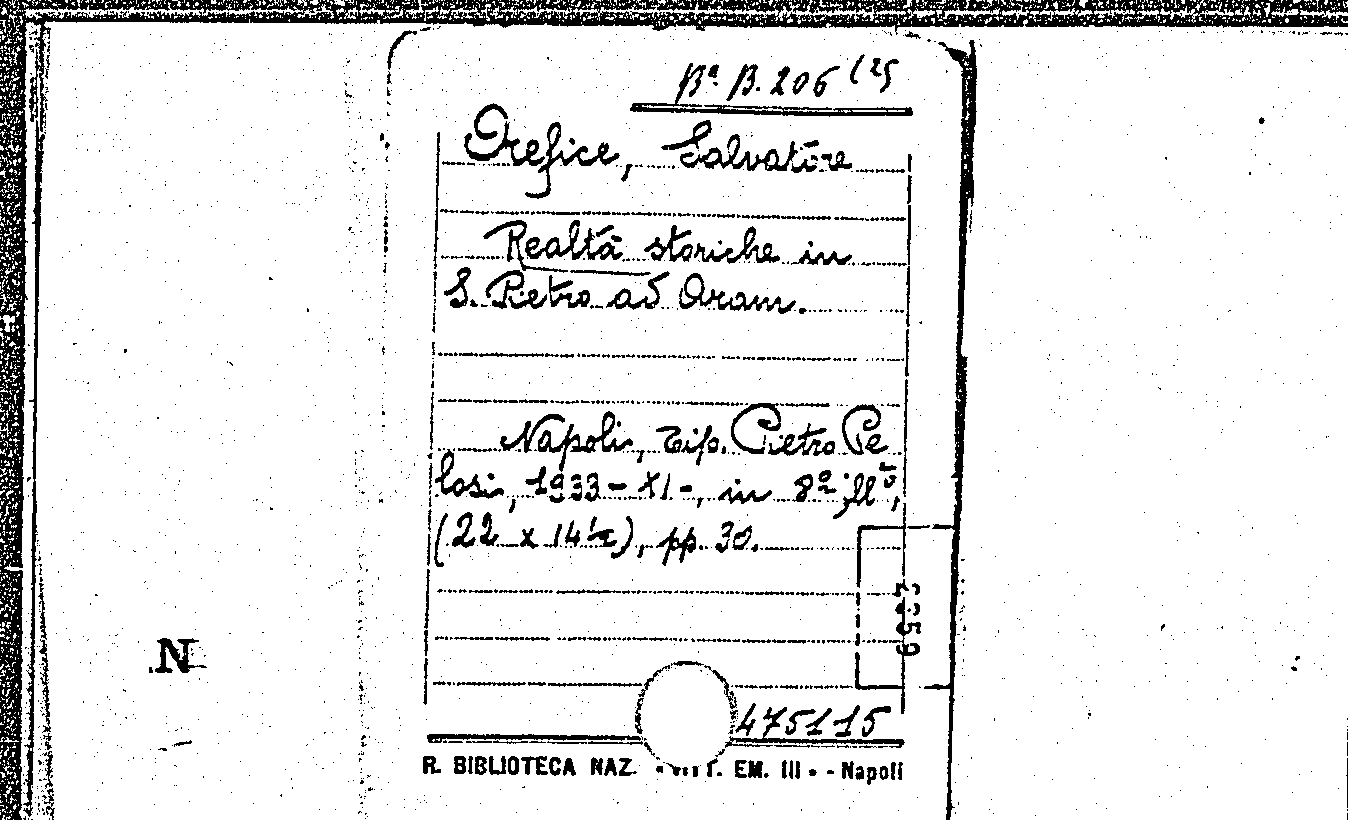 Bª B. 206 (25
Orefice, Salvatore
Realtà storiche in
S. Pietro ad Aram.
Napoli, Tip. Pietro Pe
losi, 1933 - XI -, in 8º ill^to,
(22 x 14½), pp. 30.
N
475115
R. BIBLIOTECA NAZ. EM. III » - Napoli